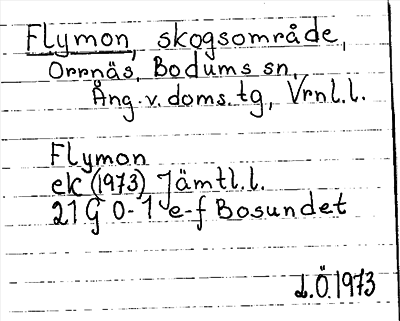 Flymon, skogsområde,
Orrnäs, Bodums sn.
Ång. v. doms. tg, Vrnl.l.
Flymon
ek (1973) Jämtl.l.
21 G 0-1 e-f Bosundet
L.Ö. 1973